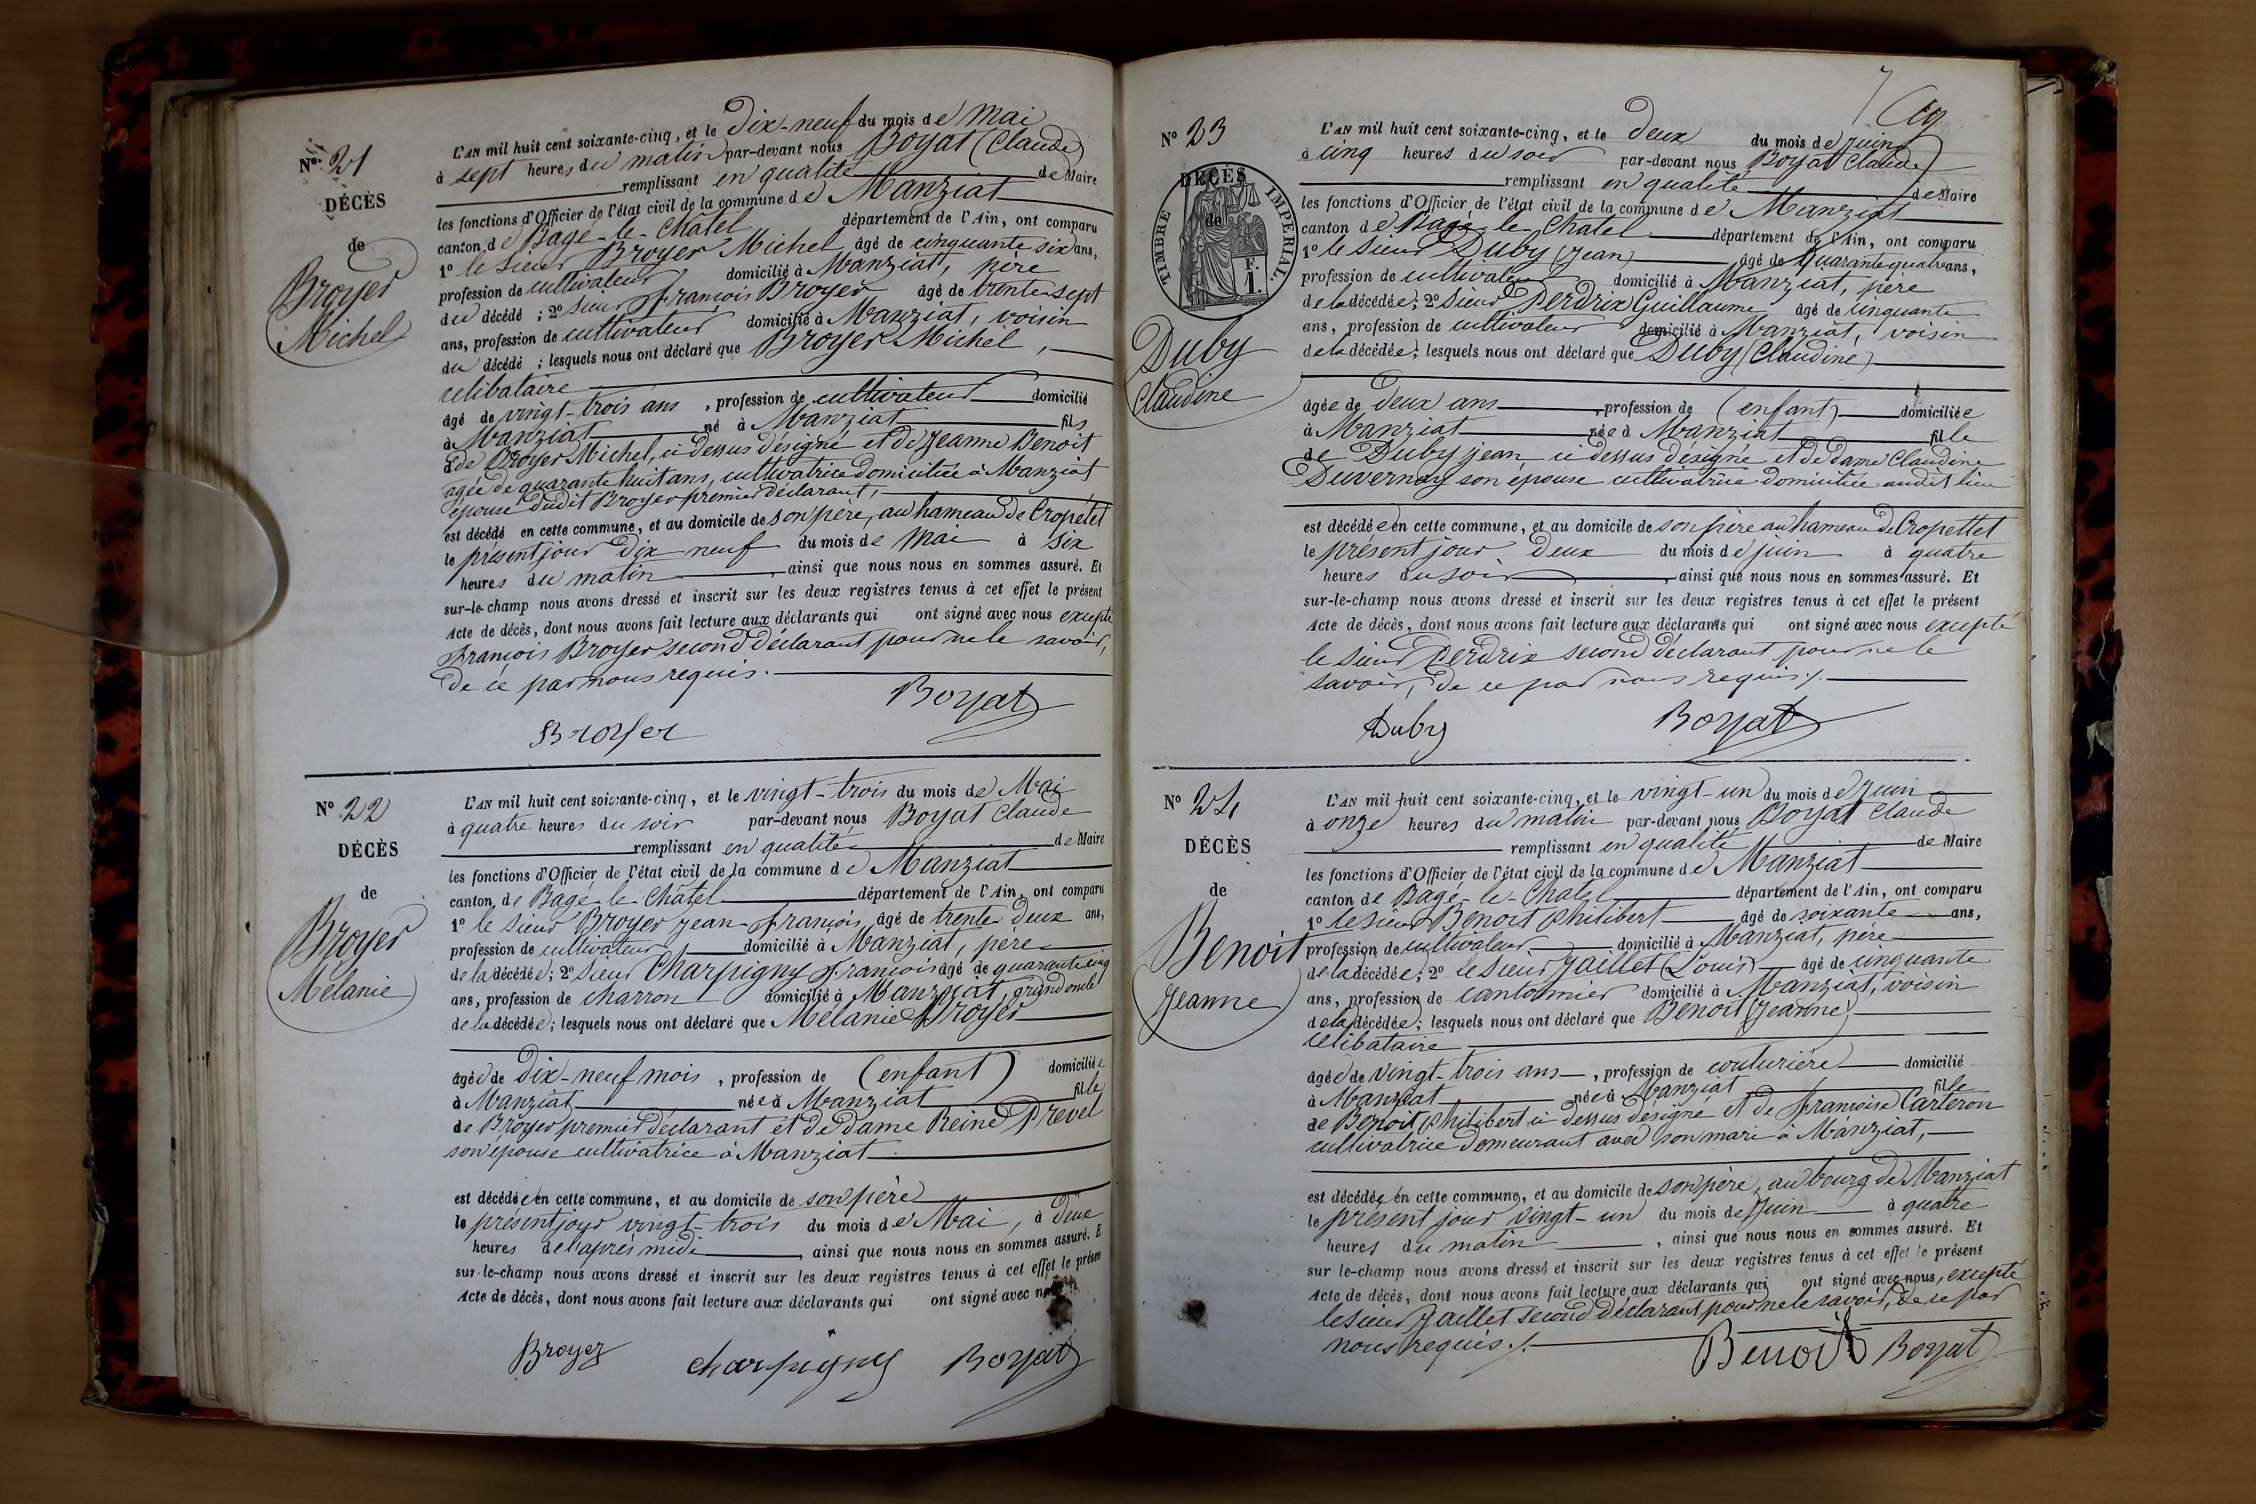 N° 21
DÉCÈS
de
Broyer
Michel
L'AN mil huit cent soixante-cinq, et le Dix-neuf du mois de Mai
à sept heures du matin par-devant nous Boyat (Claude)
remplissant en qualité de Maire
les fonctions d'Officier de l'état civil de la commune de Manziat
canton de Bagé-le-Châtel département de l'Ain, ont comparu
1° le sieur Broyer Michel âgé de cinquante six ans,
profession de cultivateur domicilié à Manziat, père
du décédé ; 2° sieur François Broyer âgé de trente sept
ans, profession de cultivateur domicilié à Manziat, voisin
du décédé ; lesquels nous ont déclaré que Broyer Michel,
célibataire
âgé de vingt-trois ans, profession de cultivateur domicilié
à Manziat né à Manziat fils
de Broyer Michel, ci dessus désigné et de Jeanne Benoit
agée de quarante huit ans, cultivatrice domiciliée à Manziat
épouse dudit Broyer premier déclarant,
est décédé en cette commune, et au domicile de son père, au hameau de Cropetet
le présent jour dix neuf du mois de Mai à six
heures du matin, ainsi que nous nous en sommes assuré. Et
sur-le-champ nous avons dressé et inscrit sur les deux registres tenus à cet effet le présent
Acte de décès, dont nous avons fait lecture aux déclarants qui ont signé avec nous excepté
François Broyer second déclarant pour ne le savoir,
de ce par nous requis.
Broyer Boyat
N° 22
DÉCÈS
de
Broyer
Mélanie
L'AN mil huit cent soixante-cinq, et le vingt-trois du mois de Mai
à quatre heures du soir par-devant nous Boyat Claude
remplissant en qualité de Maire
les fonctions d'Officier de l'état civil de la commune de Manziat
canton de Bagé-le-Châtel département de l'Ain, ont comparu
1° le sieur Broyer Jean-François âgé de trente-deux ans,
profession de cultivateur domicilié à Manziat, père
de la décédée ; 2° sieur Charpigny François âgé de quarante cinq
ans, profession de charron domicilié à Manziat, grand oncle
de la décédée ; lesquels nous ont déclaré que Mélanie Broyer
âgée de dix-neuf mois, profession de (enfant) domiciliée
à Manziat née à Manziat fille
de Broyer premier déclarant et de dame Reine Prevel
son épouse cultivatrice à Manziat
est décédée en cette commune, et au domicile de son père
le présent jour vingt-trois du mois de Mai, à deux
heures de l'après midi, ainsi que nous nous en sommes assuré. E
sur-le-champ nous avons dressé et inscrit sur les deux registres tenus à cet effet le présen
Acte de décès, dont nous avons fait lecture aux déclarants qui ont signé avec
Broyer charpigny Boyat
7
N° 23
DÉCÈS
de
TIMBRE IMPÉRIAL
F.
1.
Duby
Claudine
L'AN mil huit cent soixante-cinq, et le deux du mois de Juin
à cinq heures du soir par-devant nous Boyat Claude
remplissant en qualité de Maire
les fonctions d'Officier de l'état civil de la commune de Manziat
canton de Bagé-le-Châtel département de l'Ain, ont comparu
1° le sieur Duby (Jean) âgé de quarante quatre ans,
profession de cultivateur domicilié à Manziat, père
de la décédée ; 2° sieur Perdrix Guillaume âgé de cinquante
ans, profession de cultivateur domicilié à Manziat, voisin
de la décédée ; lesquels nous ont déclaré que Duby (Claudine)
âgée de deux ans, profession de (enfant) domiciliée
à Manziat née à Manziat fille
de Duby Jean, ci dessus désigné et de dame Claudine
Duvernay son épouse cultivatrice domiciliée audit lieu
est décédée en cette commune, et au domicile de son père au hameau de Cropettet
le présent jour deux du mois de juin à quatre
heures du soir, ainsi que nous nous en sommes assuré. Et
sur-le-champ nous avons dressé et inscrit sur les deux registres tenus à cet effet le présent
Acte de décès, dont nous avons fait lecture aux déclarants qui ont signé avec nous excepté
le sieur Perdrix second déclarant pour ne le
savoir, de ce par nous requis ./.
Duby Boyat
N° 24
DÉCÈS
de
Benoit
Jeanne
L'AN mil huit cent soixante-cinq, et le vingt-un du mois de Juin
à onze heures du matin par-devant nous Boyat Claude
remplissant en qualité de Maire
les fonctions d'Officier de l'état civil de la commune de Manziat
canton de Bagé-le-Châtel département de l'Ain, ont comparu
1° le sieur Benoit Philibert âgé de soixante ans,
profession de cultivateur domicilié à Manziat, père
de la décédée ; 2° le sieur Jaillet (Louis) âgé de cinquante
ans, profession de cantonnier domicilié à Manziat, voisin
de la décédée ; lesquels nous ont déclaré que Benoit (Jeanne)
célibataire
âgée de vingt-trois ans, profession de couturière domicilié
à Manziat née à Manziat fille
de Benoit Philibert ci dessus désigné et de Françoise Carteron
cultivatrice demeurant avec son mari à Manziat,
est décédée en cette commune, et au domicile de son père, au bourg de Manziat
le présent jour vingt-un du mois de Juin à quatre
heures du matin, ainsi que nous nous en sommes assuré. Et
sur le-champ nous avons dressé et inscrit sur les deux registres tenus à cet effet le présent
Acte de décès, dont nous avons fait lecture aux déclarants qui ont signé avec nous, excepté
le sieur Jaillet second déclarant pour ne le savoir, de ce par
nous requis ./.
Benoit Boyat